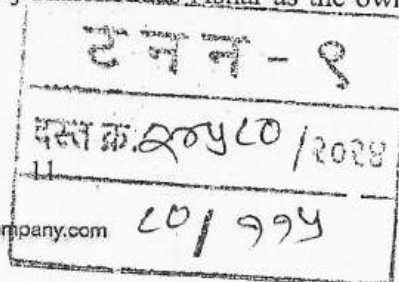 as the own
ट न न - ९
दस्त क्र. २०५८० / २०२४
11
mpany.com ८० / ११५